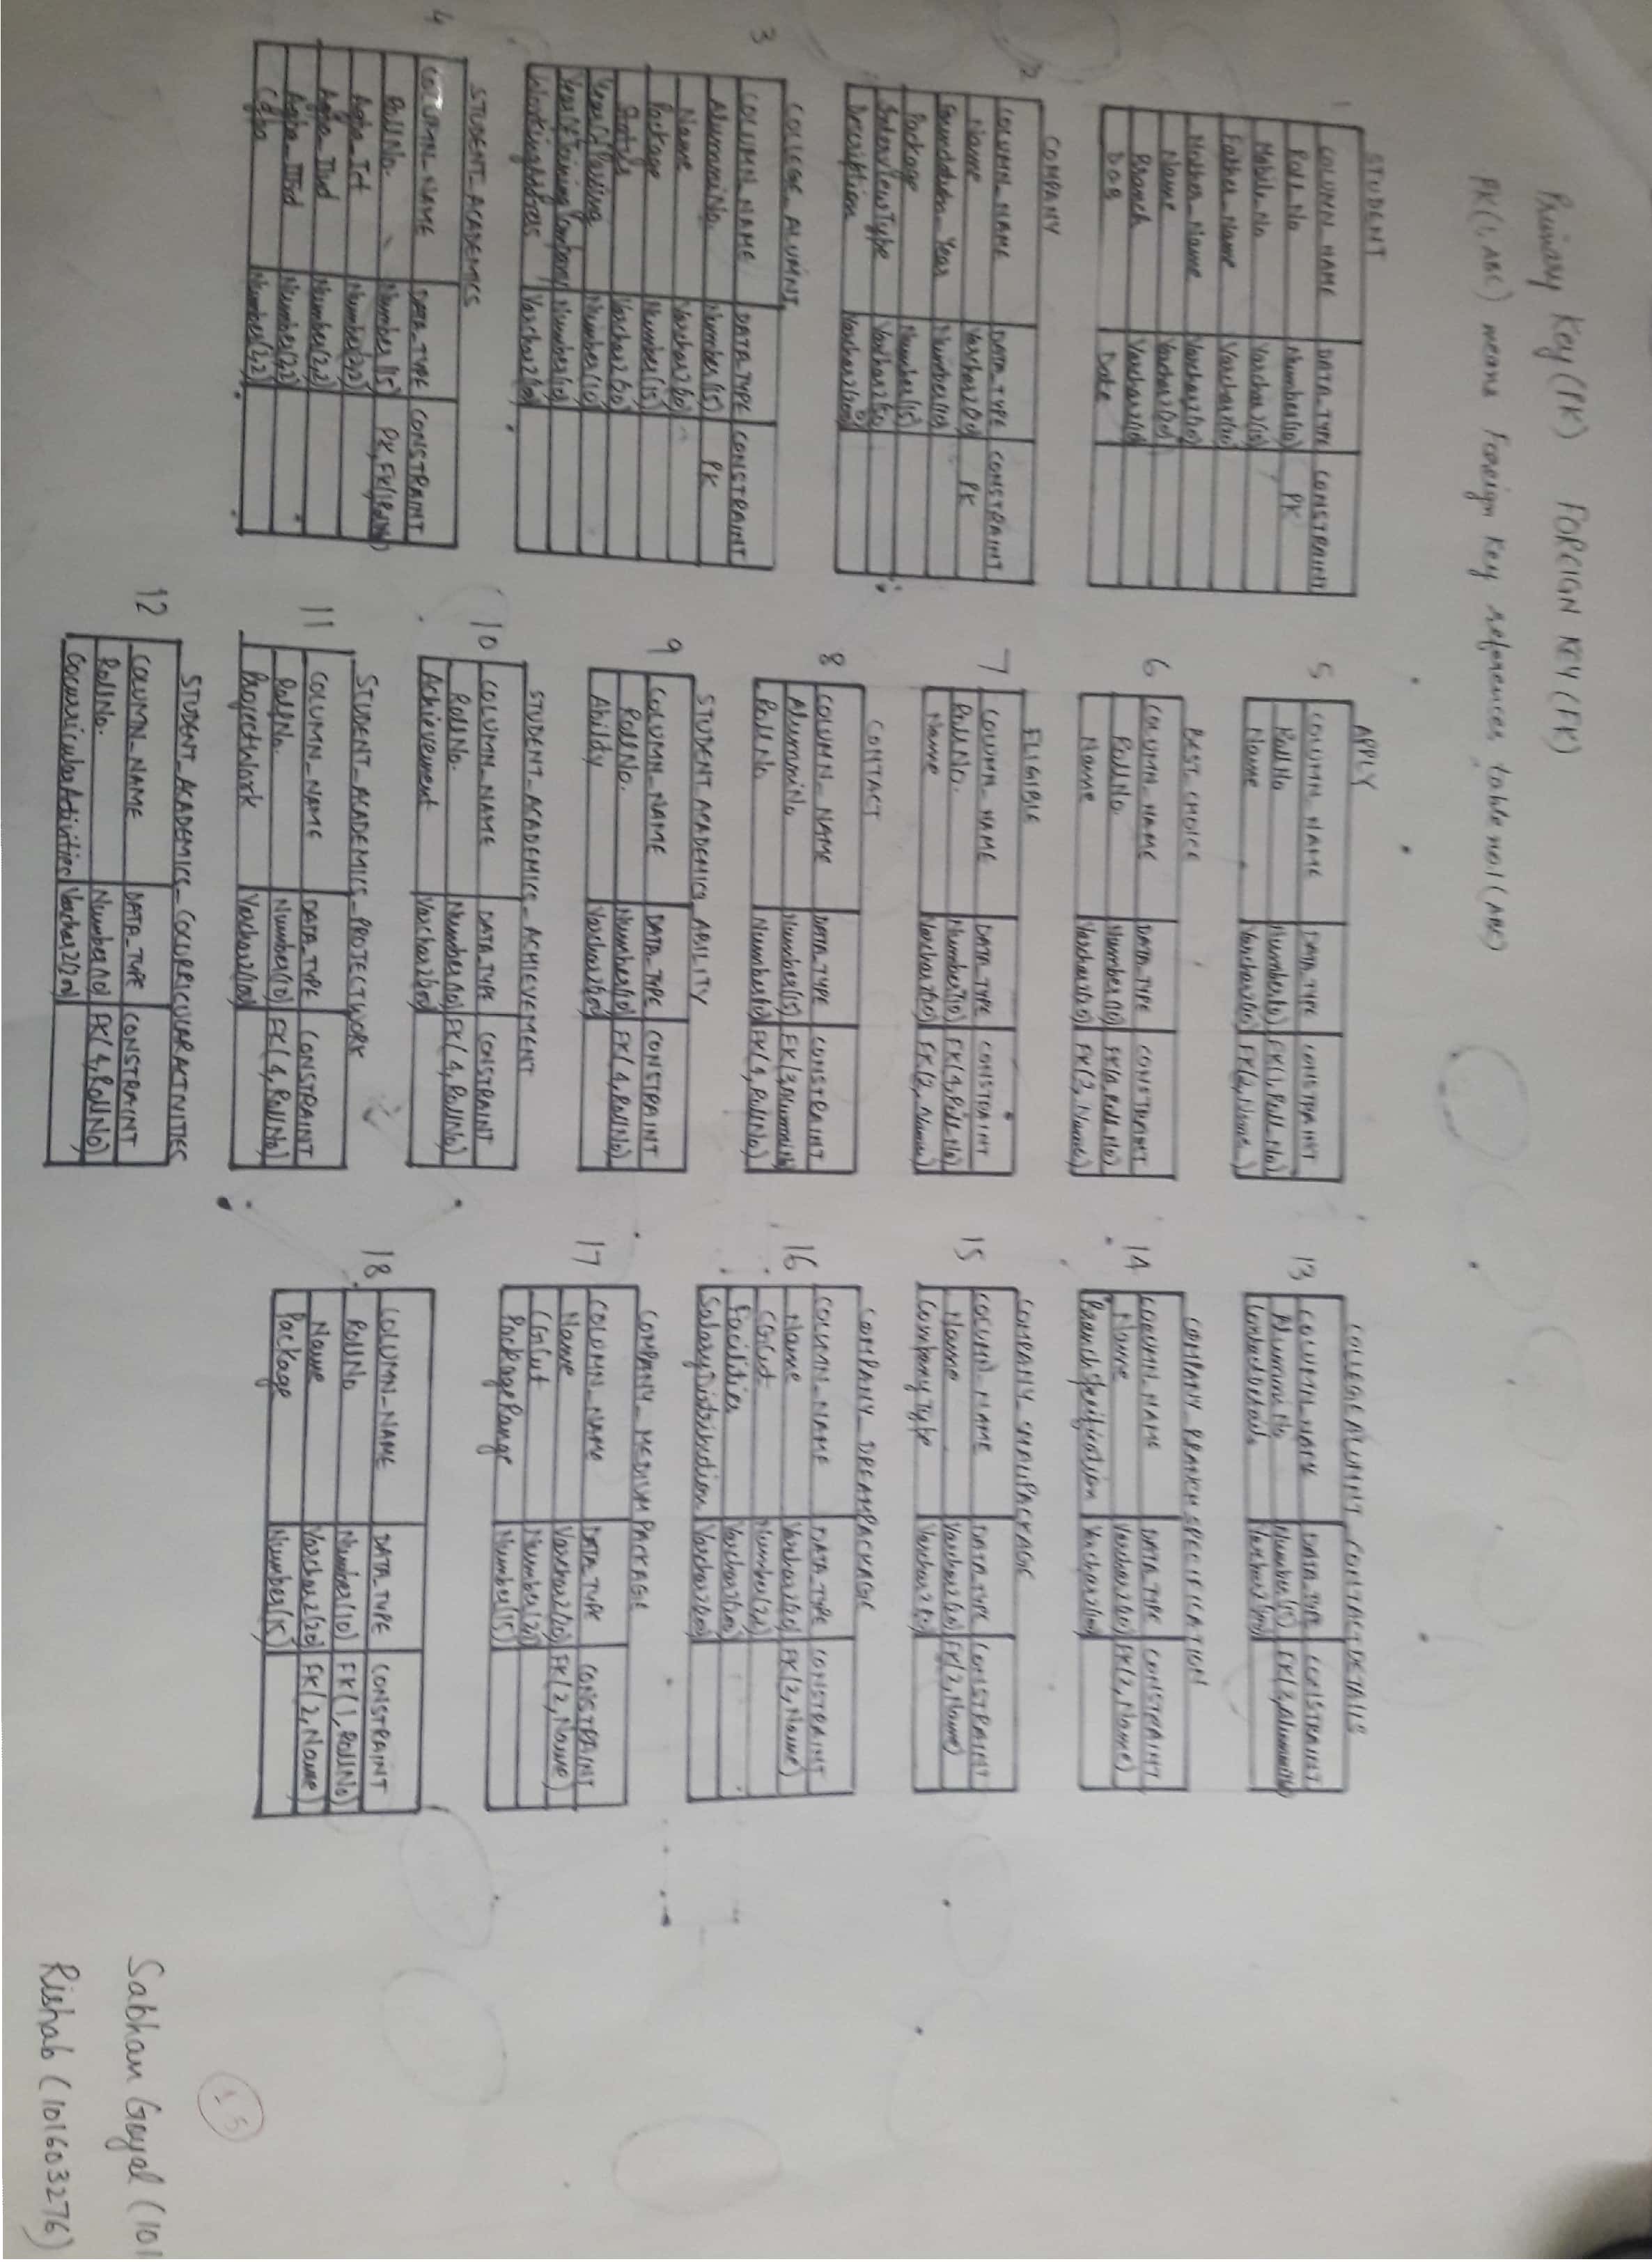 Primary Key(PK) FOREIGN KEY(FK)
FK(1, ABC) means Foreign Key references table no 1 (ABC)
1 STUDENT
COLUMN NAME DATA_TYPE CONSTRAINT
Roll_No Number(10) PK
Mobile_No Varchar2(15)
Father_Name Varchar2(20)
Mother_Name Varchar2(20)
Name Varchar2(20)
Branch Varchar2(10)
DOB Date
2 COMPANY
COLUMN_NAME DATA_TYPE CONSTRAINT
Name Varchar2(20) PK
Foundation_Year Number(10)
Package Number(15)
InterviewType
Description
3 COLLEGE_ALUMNI
COLUMN_NAME DATA_TYPE CONSTRAINT
AlumniNo. Number(15) PK
Name Varchar2(20)
Package Number(15)
Varchar2(20)
YearOfPassing Number(10)
Number(10)
WorkingAddress
4 STUDENT_ACADEMICS
COLUMN_NAME DATA_TYPE CONSTRAINT
RollNo. Number(15)
Agpa_Ist Number(2,2)
Agpa_IInd Number(2,2)
Agpa_IIIrd Number(2,2)
Cgpa Number(2,2)
5 APPLY
COLUMN_NAME DATA_TYPE CONSTRAINT
Roll No Number(10) FK(1, Roll_No)
Name Varchar2(20) FK(2, Name)
6 BEST_CHOICE
COLUMN_NAME DATA_TYPE CONSTRAINT
RollNo. Number(10)
Name Varchar2(20) FK(2, Name)
7 ELIGIBLE
COLUMN_NAME DATA_TYPE CONSTRAINT
RollNo. Number(10) FK(4, Roll_No)
Name Varchar2(20) FK(2, Name)
8 CONTACT
COLUMN_NAME DATA_TYPE CONSTRAINT
AlumniNo. Number(15)
RollNo Number(10) FK(4, RollNo)
9 STUDENT ACADEMICS_ABILITY
COLUMN_NAME DATA_TYPE CONSTRAINT
RollNo. Number(10) FK(4, RollNo)
Ability
10 STUDENT_ACADEMICS_ACHIEVEMENT
COLUMN_NAME DATA_TYPE CONSTRAINT
RollNo. Number(10) FK(4, RollNo)
Achievement
11 STUDENT_ACADEMICS_PROJECTWORK
COLUMN_NAME DATA_TYPE CONSTRAINT
RollNo. Number(10) FK(4, RollNo)
ProjectWork
12 STUDENT_ACADEMICS_COCURRICULARACTIVITIES
COLUMN_NAME DATA_TYPE CONSTRAINT
RollNo. Number(10) FK(4, RollNo)
CocurricularActivities
13 COLLEGE ALUMNI_CONTACTDETAILS
COLUMN_NAME DATA_TYPE CONSTRAINT
Alumni No Number(15)
ContactDetails
14 COMPANY_BRANCHSPECIFICATION
COLUMN_NAME DATA_TYPE CONSTRAINT
Name Varchar2(20) FK(2, Name)
BranchSpecification
15 COMPANY_SMALLPACKAGE
COLUMN_NAME DATA_TYPE CONSTRAINT
Name Varchar2(20) FK(2, Name)
CompanyType
16 COMPANY_DREAMPACKAGE
COLUMN_NAME DATA_TYPE CONSTRAINT
Name Varchar2(20) FK(2, Name)
CGCut Number(2,2)
Facilities
SalaryDistribution
17 COMPANY_MEDIUMPACKAGE
COLUMN_NAME DATA_TYPE CONSTRAINT
Name Varchar2(20) FK(2, Name)
CGCut
PackageRange Number(15)
18
COLUMN_NAME DATA_TYPE CONSTRAINT
RollNo Number(10) FK(1, RollNo)
Name Varchar2(20) FK(2, Name)
Package Number(15)
Sabhan Goyal (101
Rishab (101603276)